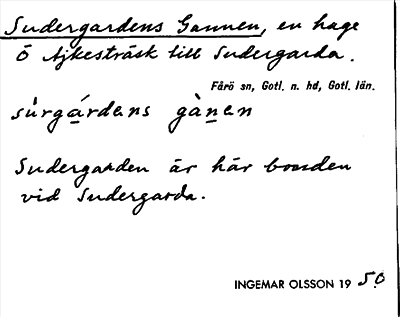 Sudergardens Gannen, en hage
Ö Ajkesträsk till Sudergarda.
Fårö sn, Gotl. n. hd, Gotl. län.
sùrgárdens gànen
Sudergarden är här bonden
vid Sudergarda.
INGEMAR OLSSON 19 50